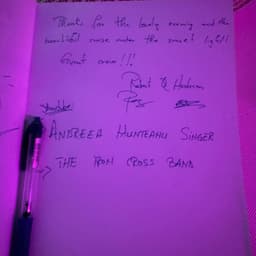 Thanks for the lovely evening and the
beautiful music under the sweet light!!
Great crew!!!
Robert &
Youtube
ANDREEA MUNTEANU SINGER
THE IRON CROSS BAND